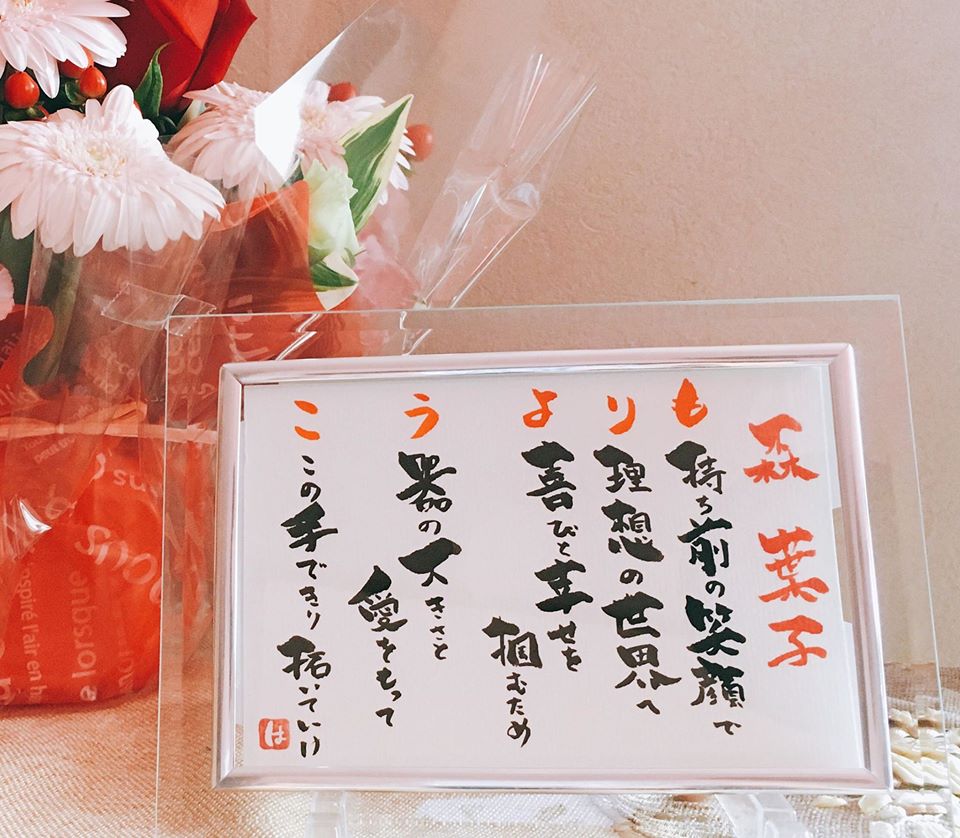 森 葉子
も 持ち前の笑顔で
り 理想の世界へ
よ 喜びと幸せを
掴むため
う 器の大きさと
愛をもって
こ この手できり拓いていけ
は
lorsque
l'air en